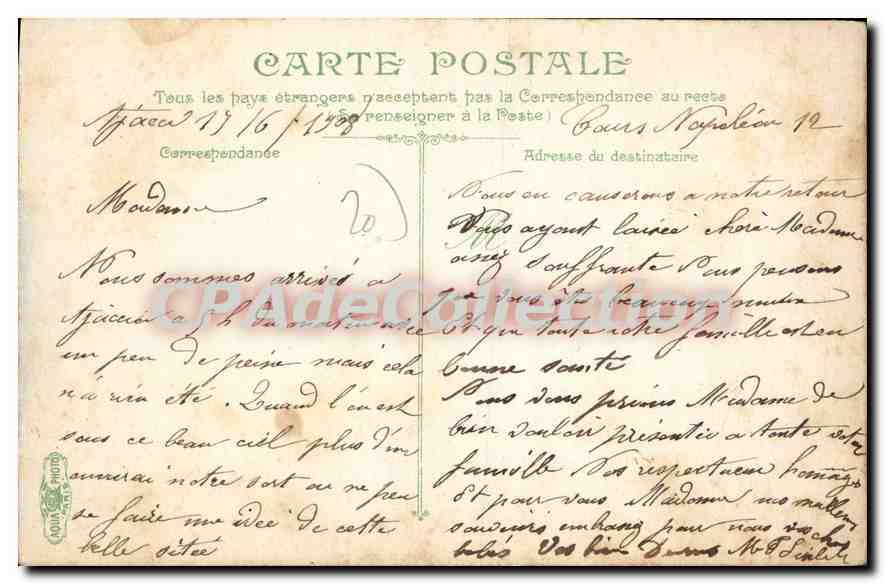 CARTE POSTALE
Tous les pays étrangers n'acceptent pas la Correspondance au recto
(Se renseigner à la Poste)
Correspondance
Adresse du destinataire
17/6/1908
Cours Napoléon 12
Madame
Nous sommes arrivés a
Ajaccio a 9 h du matin avec
un peu de peine mais cela
n'a rien été. Quand l'on est
sous ce beau ciel plus d'un
notre sort on ne peu
se faire une idée de cette
belle
Nous en causerons a notre retour
Vous ayant laissée chere Madame
assez souffrante Nous pensons
que vous êtes beaucoup mieux
Et que toute votre famille est en
bonne santé
Nous vous prions Madame de
bien vouloir presenter a toute votre
famille Nos respectueux hommages
Et pour vous Madame nos meilleurs
souvenirs pour nous vos chers
bébés Vos bien
CPAdeCollection
AQUA PHOTO
PARIS
20